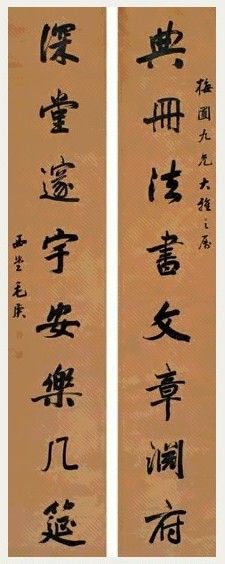 梅圃九兄大雅之屬
典冊法書文章淵府
深堂邃宇安樂几筵